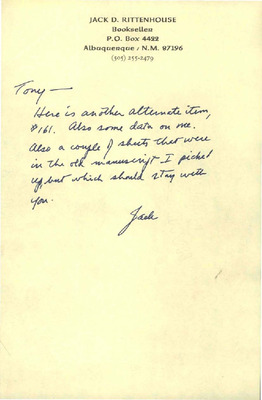 JACK D. RITTENHOUSE
Bookseller
P.O. Box 4422
Albuquerque / N.M. 87196
(505) 255-2479
Tony —
Here is another alternate item,
#161. Also some data on one.
Also a couple of sheets that were
in the old manuscript I picked
up but which should stay with
you.
Jack